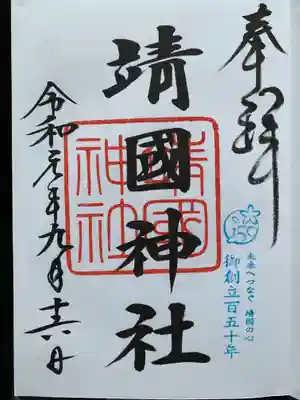 奉拝
150
未来へつなぐ 靖國の心
御創立百五十年
靖國神社
靖國
神社
令和元年九月十六日